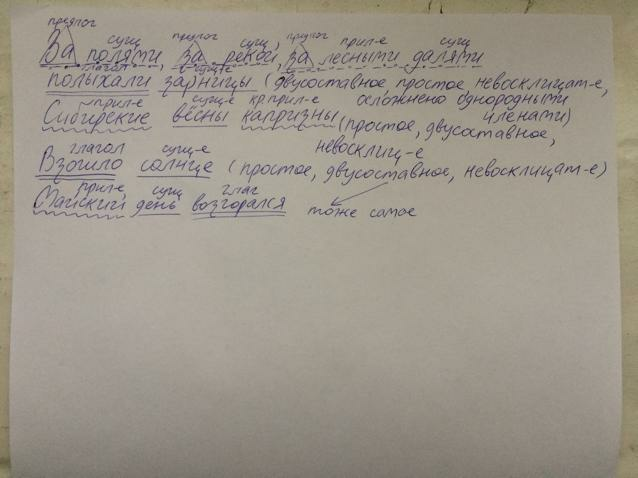 предлог сущ предлог сущ, предлог прил-е сущ
За полями, за рекой, за лесными далями
глагол сущ-е
полыхали зарницы (двусоставное, простое, невосклицат-е,
прил-е сущ-е кр.прил-е осложнено однородными
Сибирские вёсны капризны (простое, двусоставное, членами)
глагол сущ-е невосклиц-е
Взошло солнце (простое, двусоставное, невосклицат-е)
прил-е сущ глаг
Майский день возгорался тоже самое